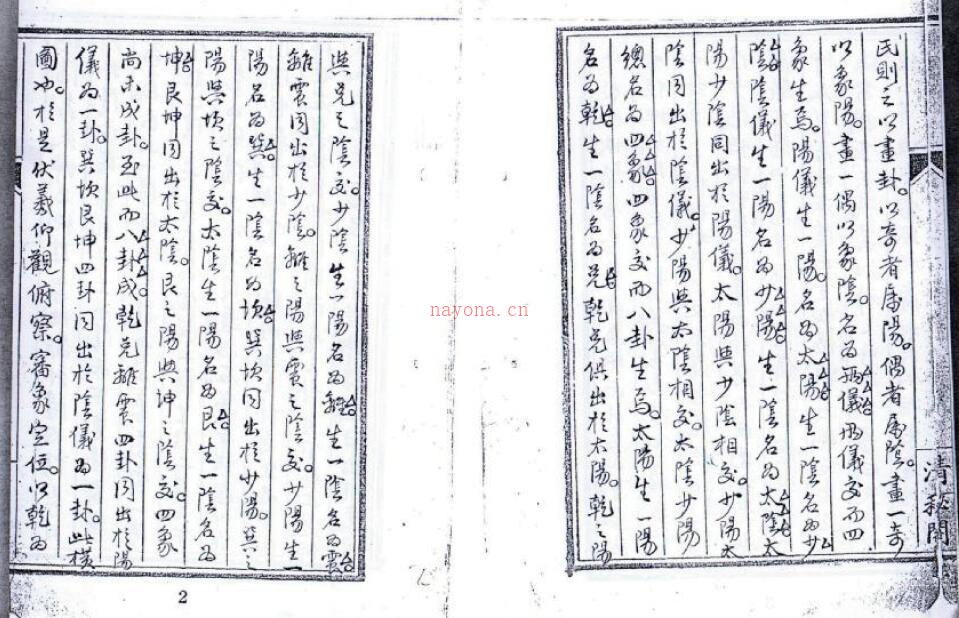 民則之以畫卦。以奇者屬陽。偶者屬陰。畫一奇
以象陽。畫一偶以象陰。名為兩儀。兩儀交而四
象生焉。陽儀生一陽。名為太陽。生一陰名為少
陰。陰儀生一陽名為少陽。生一陰名為太陰。太
陽少陰同出於陽儀。太陽與少陰相交。少陽太
陰同出於陰儀。少陽與太陰相交。太陰少陽
總名為四象。四象交而八卦生焉。太陽生一陽
名為乾。生一陰名為兌。乾兌俱出於太陽。乾之陽
與兌之陰交。少陰生一陽名為離。生一陰名為震。
離震同出於少陰。離之陽與震之陰交。少陽生一
陽名為巽。生一陰名為坎。巽坎同出於少陽。巽之
陽與坎之陰交。太陰生一陽名為艮。生一陰名為
坤。艮坤同出於太陰。艮之陽與坤之陰交。四象
尚未成卦。至此而八卦成。乾兌離震四卦同出於陽
儀為一卦。巽坎艮坤四卦同出於陰儀為一卦。此橫
圖也。於是伏羲仰觀俯察。審象定位。以乾為
清秘閣
nayona.cn
2